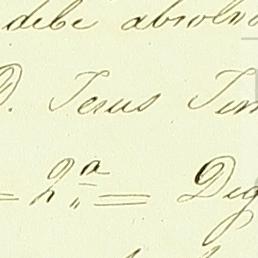 debe absolv
D. Jesus Jim
= 2.ª = Dig